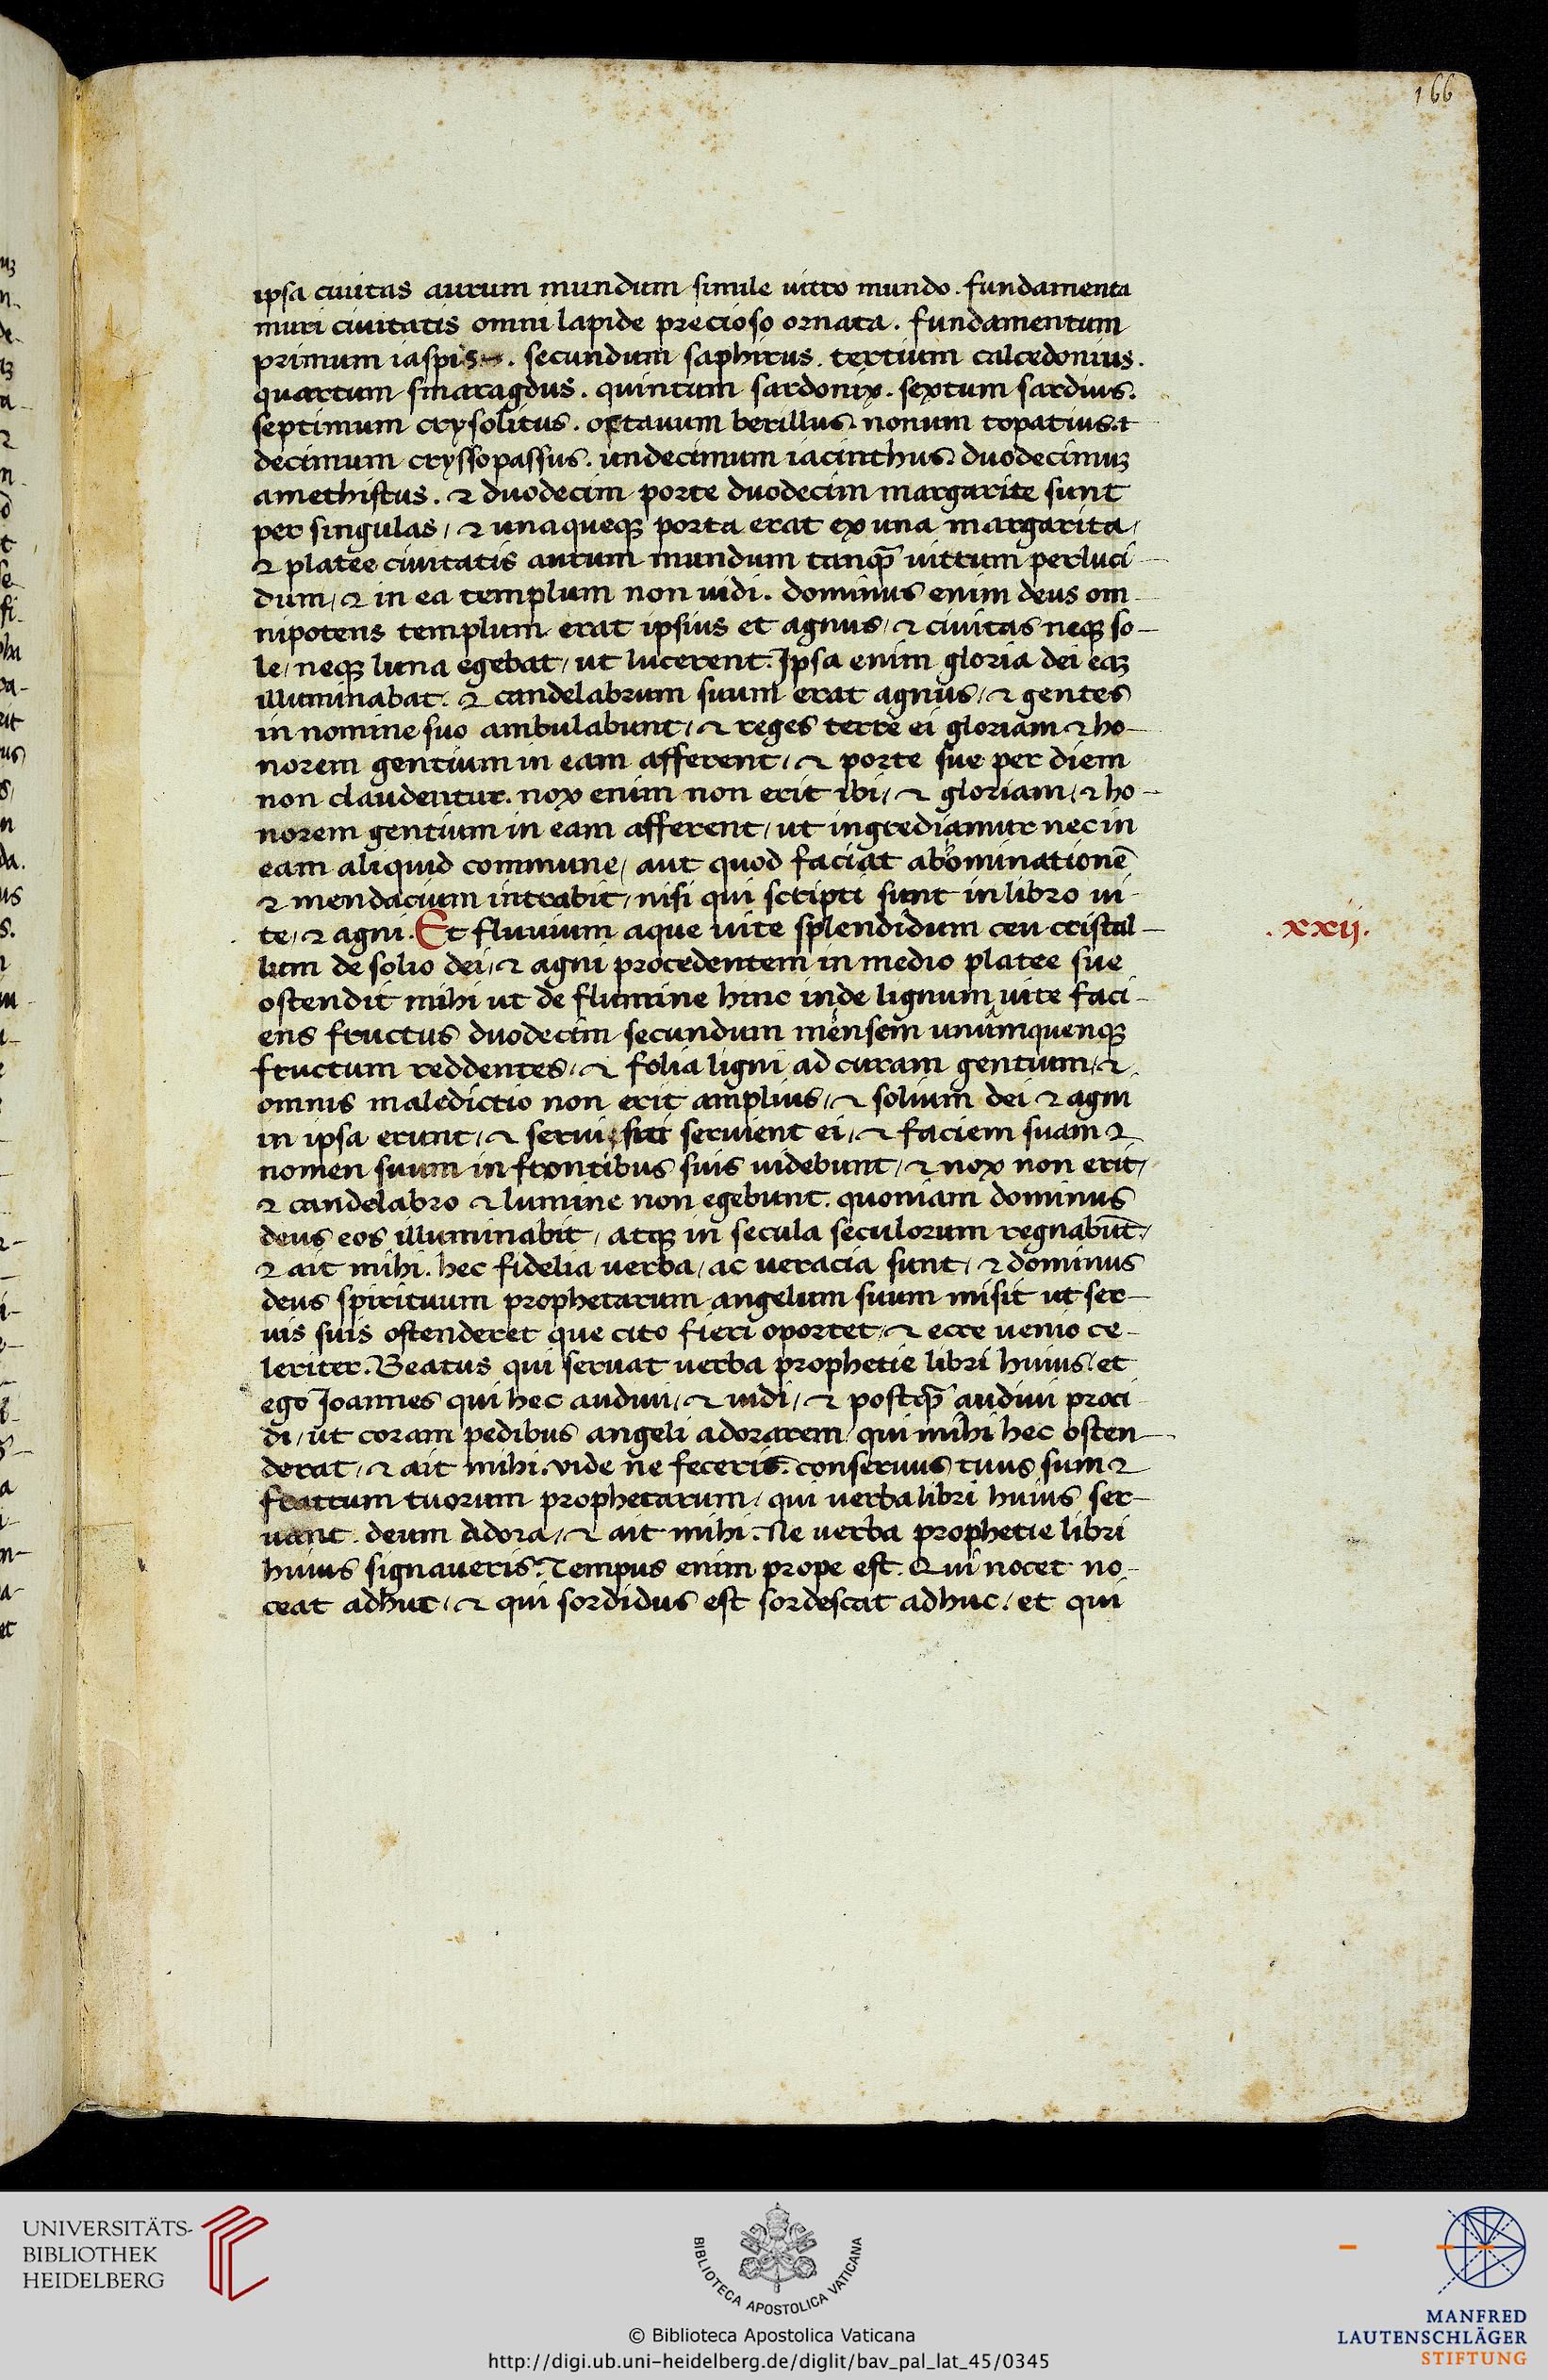 166
ipsa ciuitas aurum mundum simile uitro mundo. fundamenta
muri ciuitatis omni lapide precioso ornata. fundamentum
primum iaspis. secundum saphirus. tertium calcedonius.
quartum smaragdus. quintum sardonix. sextum sardius.
septimum crysolitus. octauum berillus. nonum topatius.
decimum cryssopassus. undecimum iacinthus. duodecimuꝫ
amethistus. ⁊ duodecim porte duodecim margarite sunt
per singulas / ⁊ unaqueqꝫ porta erat ex una margarita /
⁊ platee ciuitatis aurum mundum tanꝙ̃ uitrum perluci-
dum / ⁊ in ea templum non uidi. dominus enim deus om-
nipotens templum erat ipsius et agnus / ⁊ ciuitas neqꝫ so-
le / neqꝫ luna egebat / ut lucerent. Ipsa enim gloria dei eaꝫ
illuminabat. ⁊ candelabrum suum erat agnus / ⁊ gentes
in nomine suo ambulabunt / ⁊ reges terre ei gloriam ⁊ ho-
norem gentium in eam afferent / ⁊ porte sue per diem
non claudentur. nox enim non erit ibi / ⁊ gloriam / ⁊ ho-
norem gentium in eam afferent / ut ingrediamur nec in
eam aliquid commune / aut quod faciat abominationē
⁊ mendacium intrabit / nisi qui scripti sunt in libro ui-
te / ⁊ agni. Et fluuium aque uite splendidum ceu cristal-
.xxij.
lum de solio dei / ⁊ agni procedentem in medio platee sue
ostendit mihi ut de flumine hinc inde lignum uite faci-
ens fructus duodecim secundum mensem unumquenqꝫ
fructum reddentes / ⁊ folia ligni ad curam gentium / ⁊
omnis maledictio non erit amplius / ⁊ solium dei ⁊ agni
in ipsa erunt / ⁊ serui sui seruient ei / ⁊ faciem suam ⁊
nomen suum in frontibus suis uidebunt / ⁊ nox non erit /
⁊ candelabro ⁊ lumine non egebunt. quoniam dominus
deus eos illuminabit / atqꝫ in secula seculorum regnabūt /
⁊ ait mihi. hec fidelia uerba / ac ueracia sunt / ⁊ dominus
deus spirituum prophetarum angelum suum misit ut ser-
uis suis ostenderet que cito fieri oportet / ⁊ ecce uenio ce-
leriter. Beatus qui seruat uerba prophetie libri huius / et
ego Joannes qui hec audiui / ⁊ uidi / ⁊ postꝙ̃ audiui proci-
di / ut coram pedibus angeli adorarem / qui mihi hec osten-
derat / ⁊ ait mihi. vide ne feceris. conseruus tuus sum ⁊
fratrum tuorum prophetarum / qui uerba libri huius ser-
uant. deum adora / ⁊ ait mihi. Ne uerba prophetie libri
huius signaueris. Tempus enim prope est. Qui nocet no-
ceat adhuc / ⁊ qui sordidus est sordescat adhuc / et qui
UNIVERSITÄTS-
BIBLIOTHEK
HEIDELBERG
BIBLIOTECA APOSTOLICA VATICANA
© Biblioteca Apostolica Vaticana
http://digi.ub.uni-heidelberg.de/diglit/bav_pal_lat_45/0345
MANFRED
LAUTENSCHLÄGER
STIFTUNG